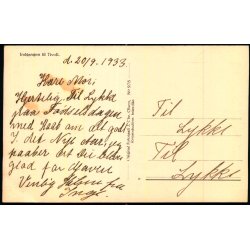 Indgangen til Tivoli.
d. 20/9. 1933.
Kære Mor!
Hjertelig Til Lykke
paa Fødselsdagen
med Haab om alt godt
I det Nye Aar, jeg
haaber at Du bliver
glad for Gaven
Venlig Hilsen fra
Til
Lykke
Til
Lykke